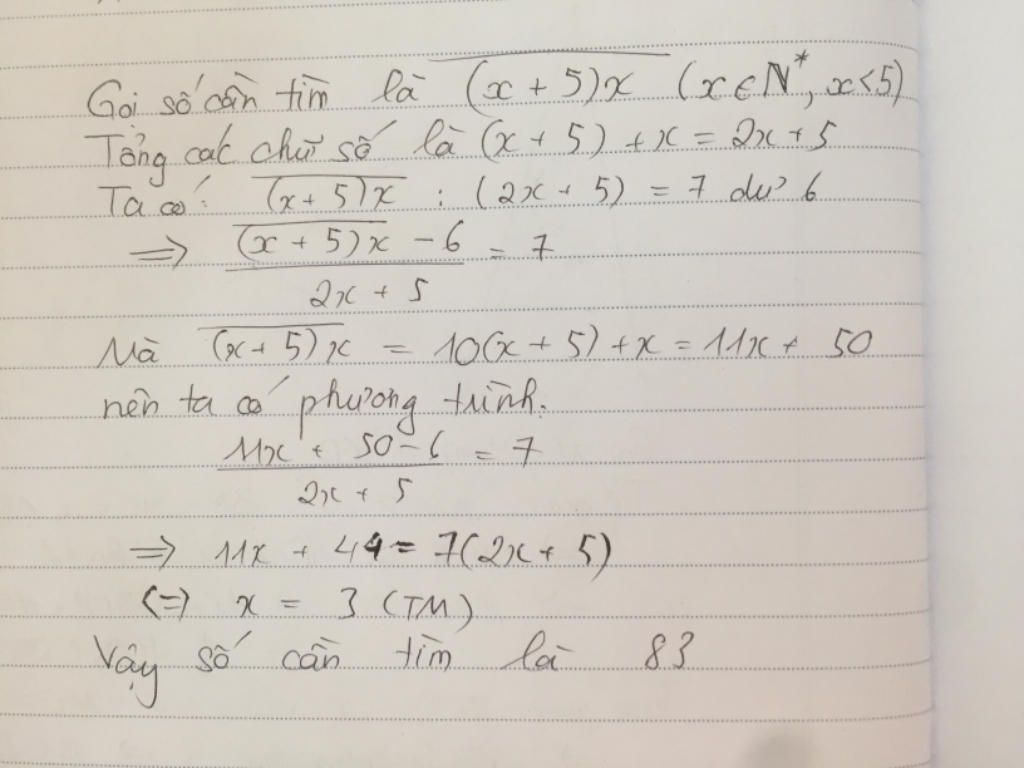 Gọi số cần tìm là \overline{(x + 5)x} (x ∈ N*, x < 5)
Tổng các chữ số là (x + 5) + x = 2x + 5
Ta có: \overline{(x + 5)x} : (2x + 5) = 7 dư 6
=> \frac{\overline{(x + 5)x} - 6}{2x + 5} = 7
Mà \overline{(x + 5)x} = 10(x + 5) + x = 11x + 50
nên ta có phương trình.
\frac{11x + 50 - 6}{2x + 5} = 7
=> 11x + 44 = 7(2x + 5)
<=> x = 3 (TM)
Vậy số cần tìm là 83